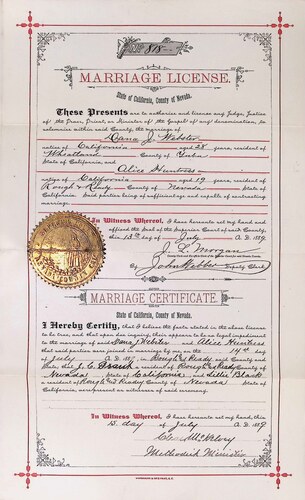 818
MARRIAGE LICENSE.
State of California, County of Nevada.
These Presents are to authorize and license any Judge, Justice
of the Peace, Priest, or Minister of the Gospel of any denomination, to
solemnize within said County, the marriage of
Dana J. Webster
native of California aged 28 years, resident of
Wheatland County of Yuba
State of California, and
Alice Huntress
native of California aged 19 years, resident of
Rough & Ready County of Nevada State of
California. Said parties being of sufficient age and capable of contracting
marriage.
In Witness Whereof, I have hereunto set my hand and
affixed the Seal of the Superior Court of said County,
this 13th day of July A. D. 1889
J. L. Morgan
By John Webber Deputy Clerk
MARRIAGE CERTIFICATE.
State of California, County of Nevada.
I Hereby Certify, that I believe the facts stated in the above license
to be true, and that upon due inquiry there appears to be no legal impediment
to the marriage of said Dana J. Webster and Alice Huntress
that said parties were joined in marriage by me, on the 14th day
of July A. D. 1889, in Rough & Ready said County and
State; that J. C. a resident of Rough & Ready County of
Nevada State of California and Lillie Black
a resident of Rough and Ready County of Nevada State of
California, were present as witnesses of said ceremony.
In Witness Whereof, I have hereunto set my hand, this
15 day of July A. D. 1889
Methodist Minister